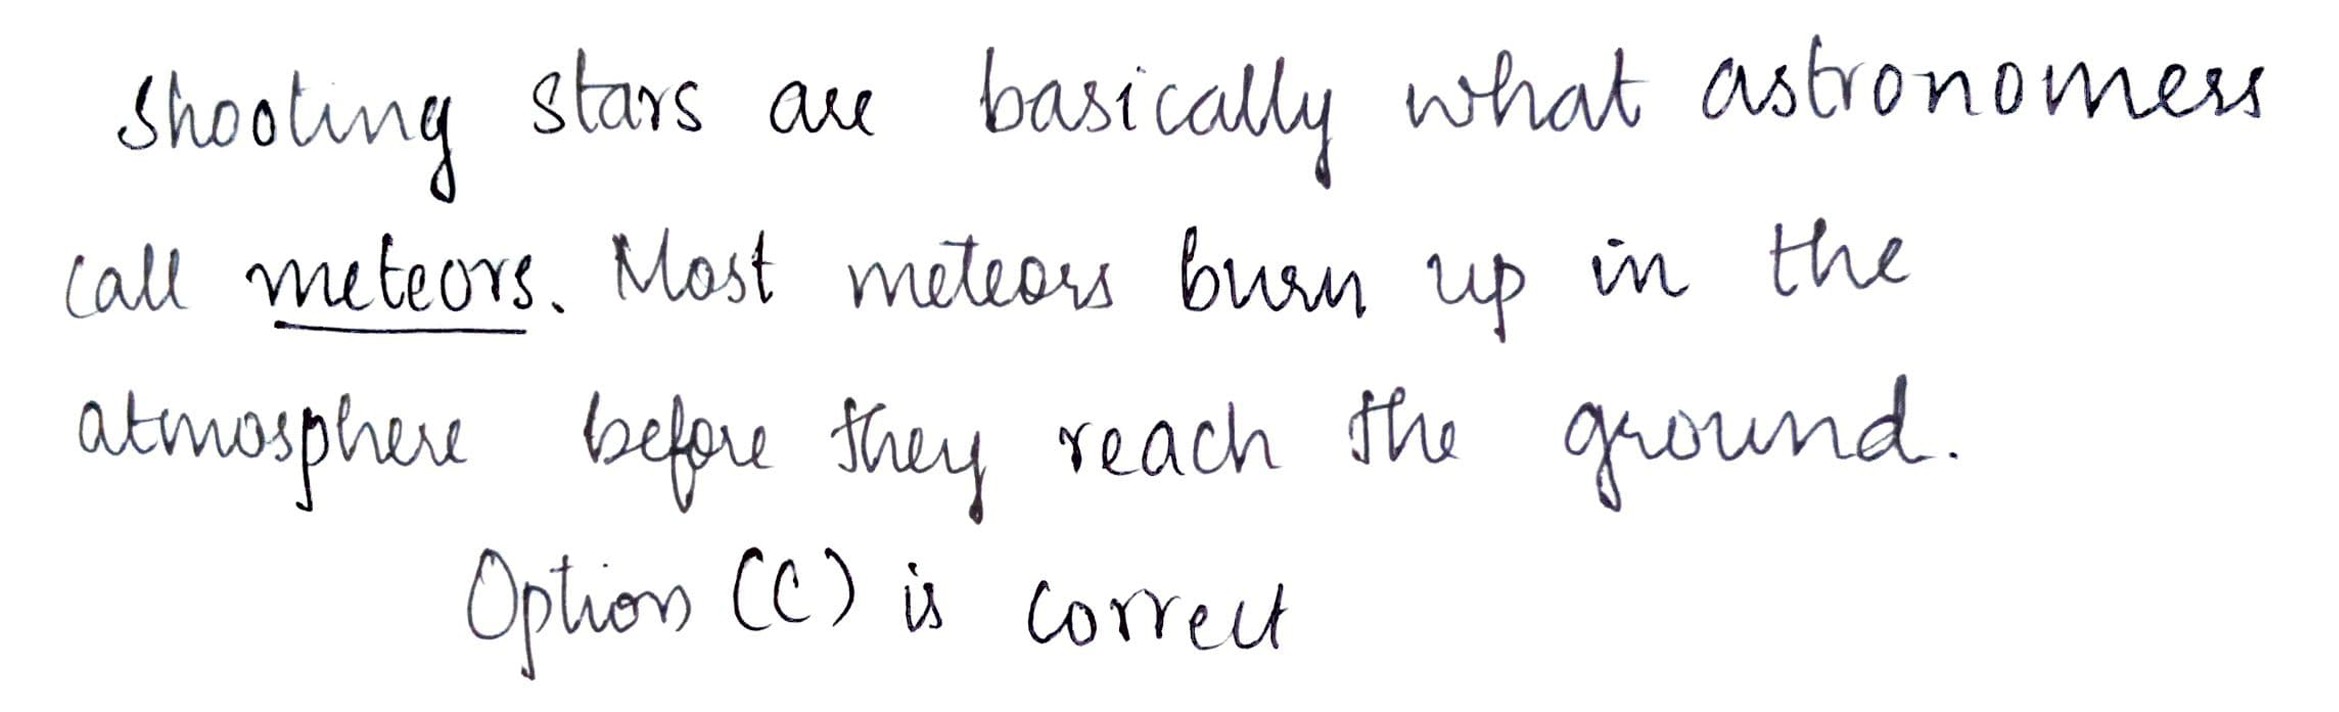 Shooting stars are basically what astronomers
call meteors. Most meteors burn up in the
atmosphere before they reach the ground.
Option (C) is correct